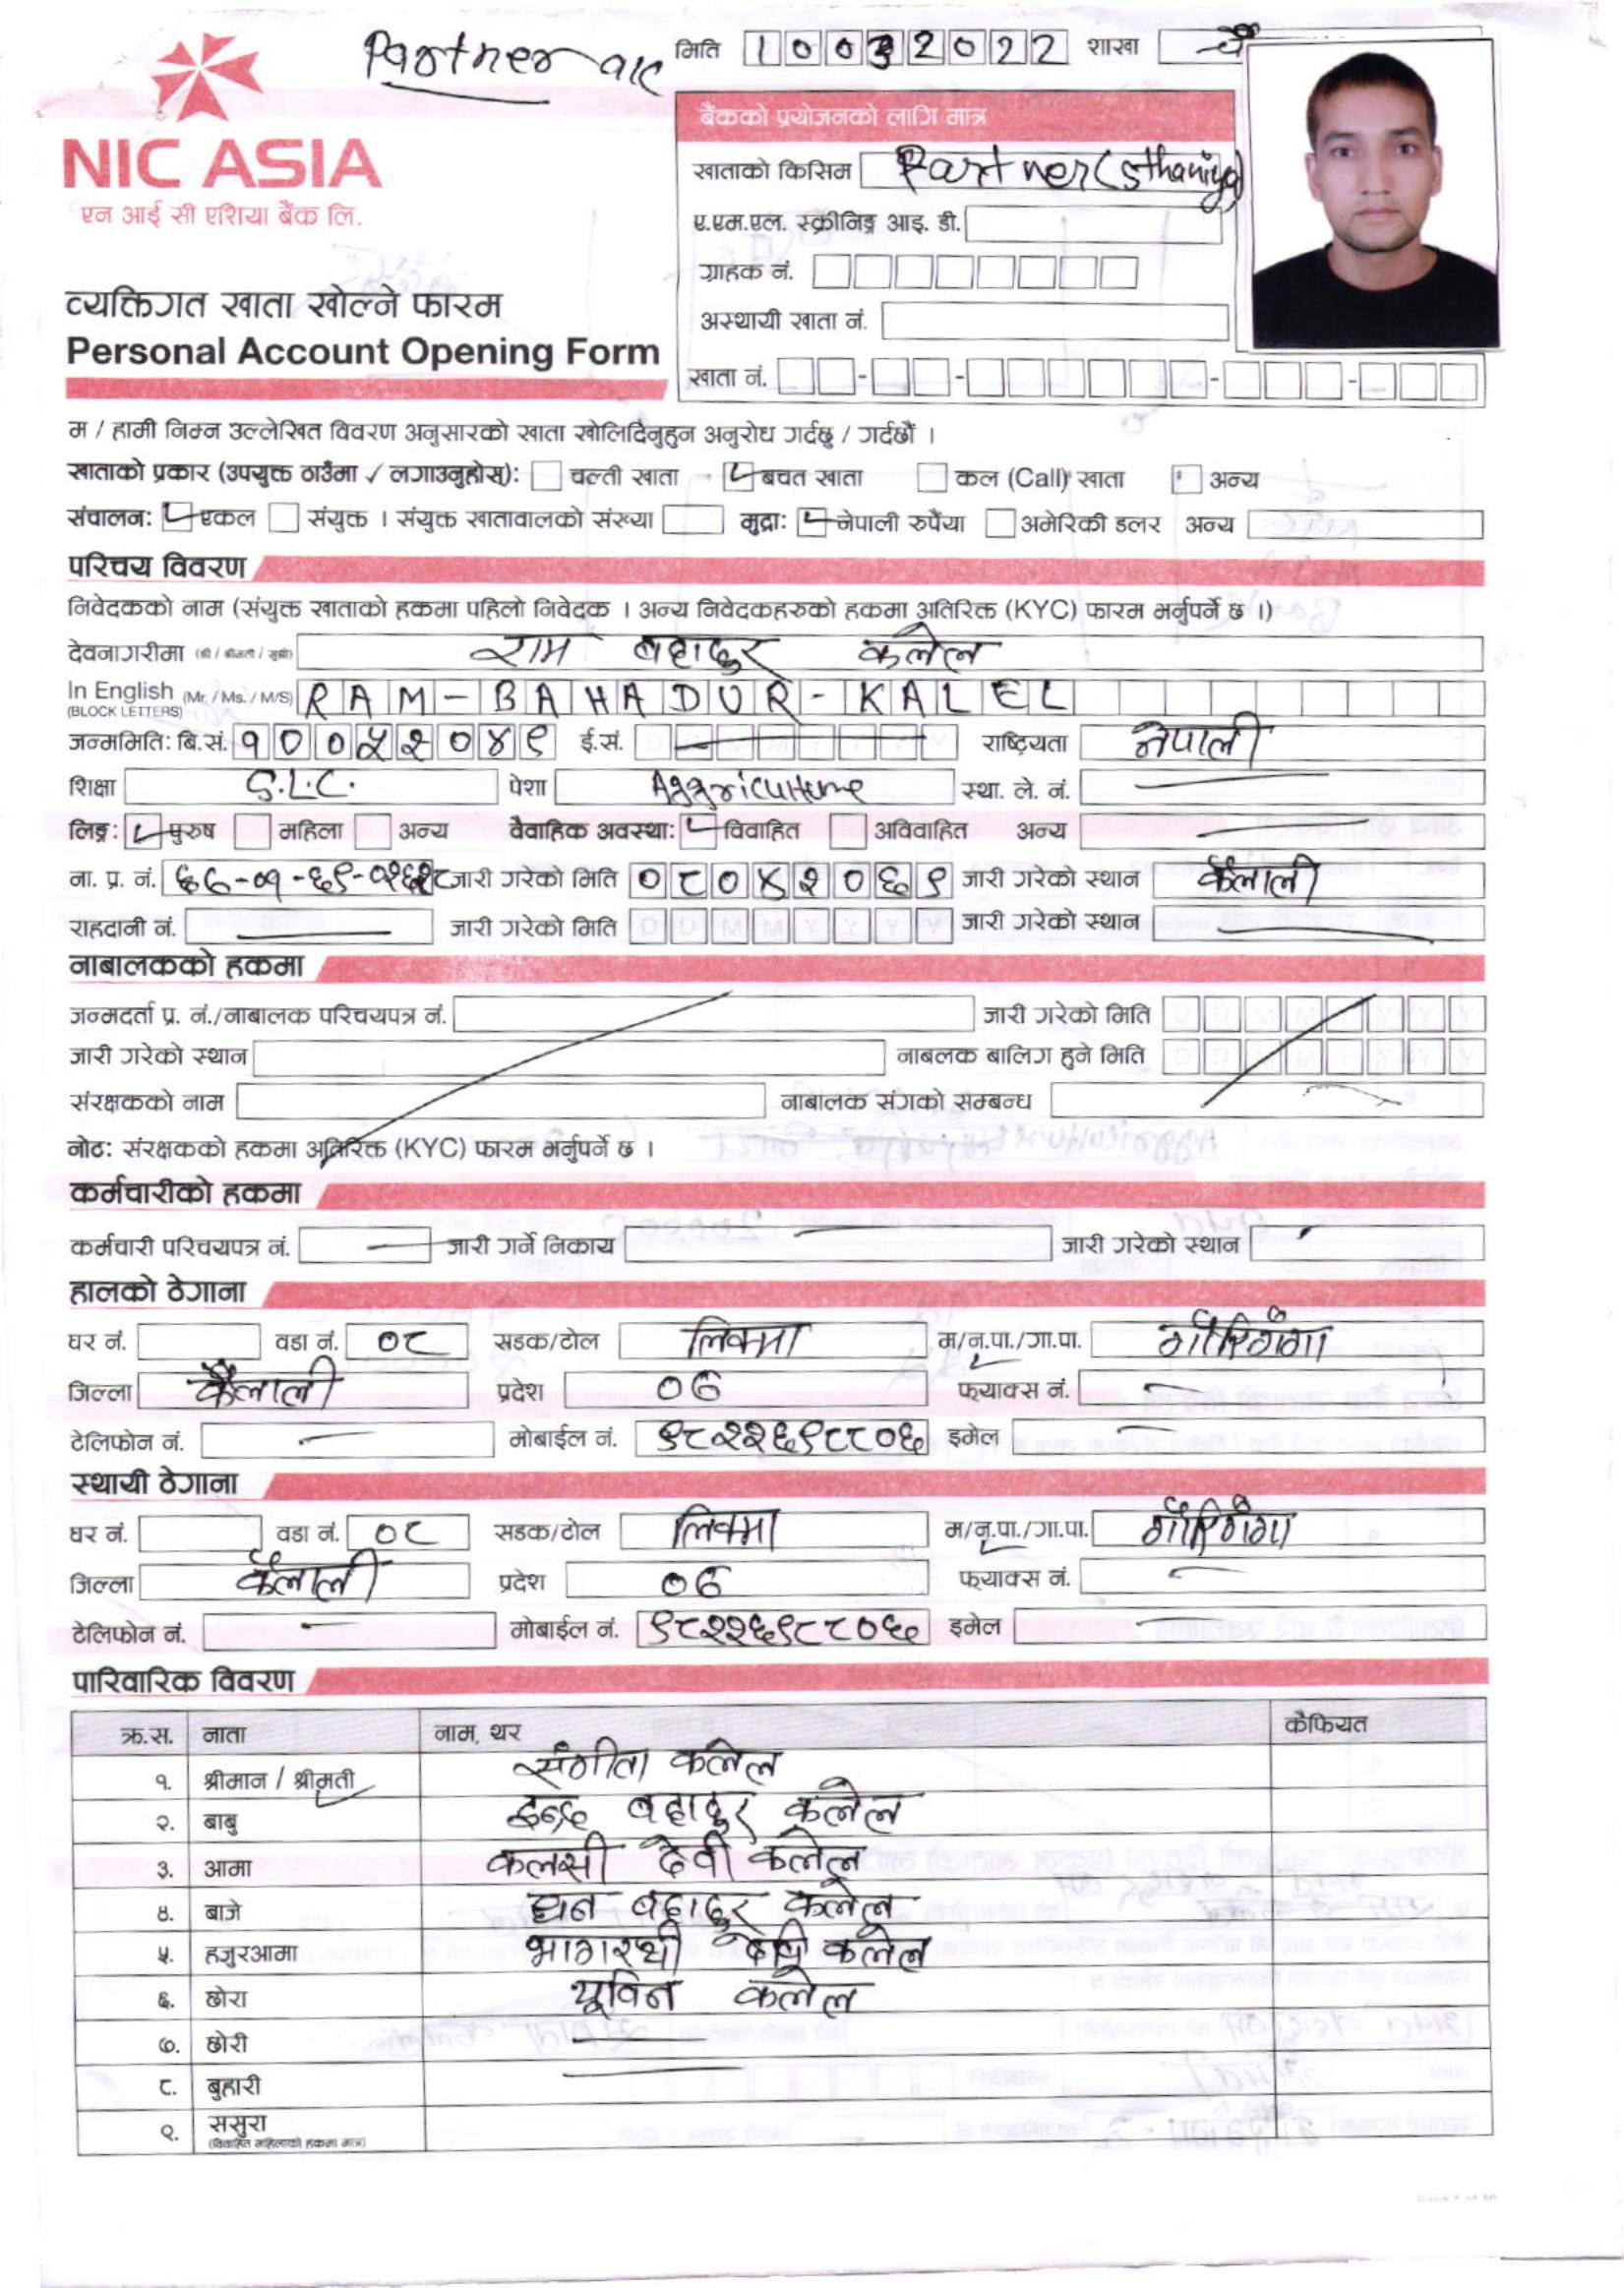 Partner a/c
मिति 10032022 शाखा
NIC ASIA
एन आई सी एशिया बैंक लि.
बैंकको प्रयोजनको लागि मात्र
खाताको किसिम Partner (sthaniya)
ए.एम.एल. स्क्रीनिङ्ग आइ. डी.
ग्राहक नं.
अस्थायी खाता नं.
खाता नं. - - - -
व्यक्तिगत खाता खोल्ने फारम
Personal Account Opening Form
म / हामी निम्न उल्लेखित विवरण अनुसारको खाता खोलिदिनुहुन अनुरोध गर्दछु / गर्दछौं ।
खाताको प्रकार (उपयुक्त ठाउँमा ✓ लगाउनुहोस्): चल्ती खाता बचत खाता कल (Call) खाता अन्य
संचालन: एकल संयुक्त । संयुक्त खातावालको संख्या मुद्रा: नेपाली रुपैंया अमेरिकी डलर अन्य
परिचय विवरण
निवेदकको नाम (संयुक्त खाताको हकमा पहिलो निवेदक । अन्य निवेदकहरुको हकमा अतिरिक्त (KYC) फारम भर्नुपर्ने छ ।)
देवनागरीमा (श्री / श्रीमती / सुश्री) राम बहादुर कलेल
In English (Mr. / Ms. / M/S) RAM-BAHADUR-KALEL
(BLOCK LETTERS)
जन्ममिति: बि.सं. १००५२०४९ ई.सं. राष्ट्रियता नेपाली
शिक्षा S.L.C. पेशा Aggriculture स्था. ले. नं.
लिङ्ग: पुरुष महिला अन्य वैवाहिक अवस्था: विवाहित अविवाहित अन्य
ना. प्र. नं. जारी गरेको मिति ०८०४२०६९ जारी गरेको स्थान कैलाली
राहदानी नं. जारी गरेको मिति जारी गरेको स्थान
नाबालकको हकमा
जन्मदर्ता प्र. नं./नाबालक परिचयपत्र नं. जारी गरेको मिति
जारी गरेको स्थान नाबलक बालिग हुने मिति
संरक्षकको नाम नाबालक संगको सम्बन्ध
नोट: संरक्षकको हकमा अतिरिक्त (KYC) फारम भर्नुपर्ने छ ।
कर्मचारीको हकमा
कर्मचारी परिचयपत्र नं. जारी गर्ने निकाय जारी गरेको स्थान
हालको ठेगाना
घर नं. वडा नं. ०८ सडक/टोल लिक्मा म/न.पा./गा.पा. गौरिगंगा
जिल्ला कैलाली प्रदेश ०७ फ्याक्स नं.
टेलिफोन नं. मोबाईल नं. ९८२२६९८८०६ इमेल
स्थायी ठेगाना
घर नं. वडा नं. ०८ सडक/टोल लिक्मा म/न.पा./गा.पा. गौरिगंगा
जिल्ला कैलाली प्रदेश ०७ फ्याक्स नं.
टेलिफोन नं. मोबाईल नं. ९८२२६९८८०६ इमेल
पारिवारिक विवरण
क्र.स. नाता नाम, थर कैफियत
१. श्रीमान / श्रीमती संगीता कलेल
२. बाबु इन्द्र बहादुर कलेल
३. आमा कलसी देवी कलेल
४. बाजे धन बहादुर कलेल
५. हजुरआमा भागरथी कलेल
६. छोरा यूविन कलेल
७. छोरी
८. बुहारी
९. ससुरा
(विवाहित महिलाको हकमा मात्र)